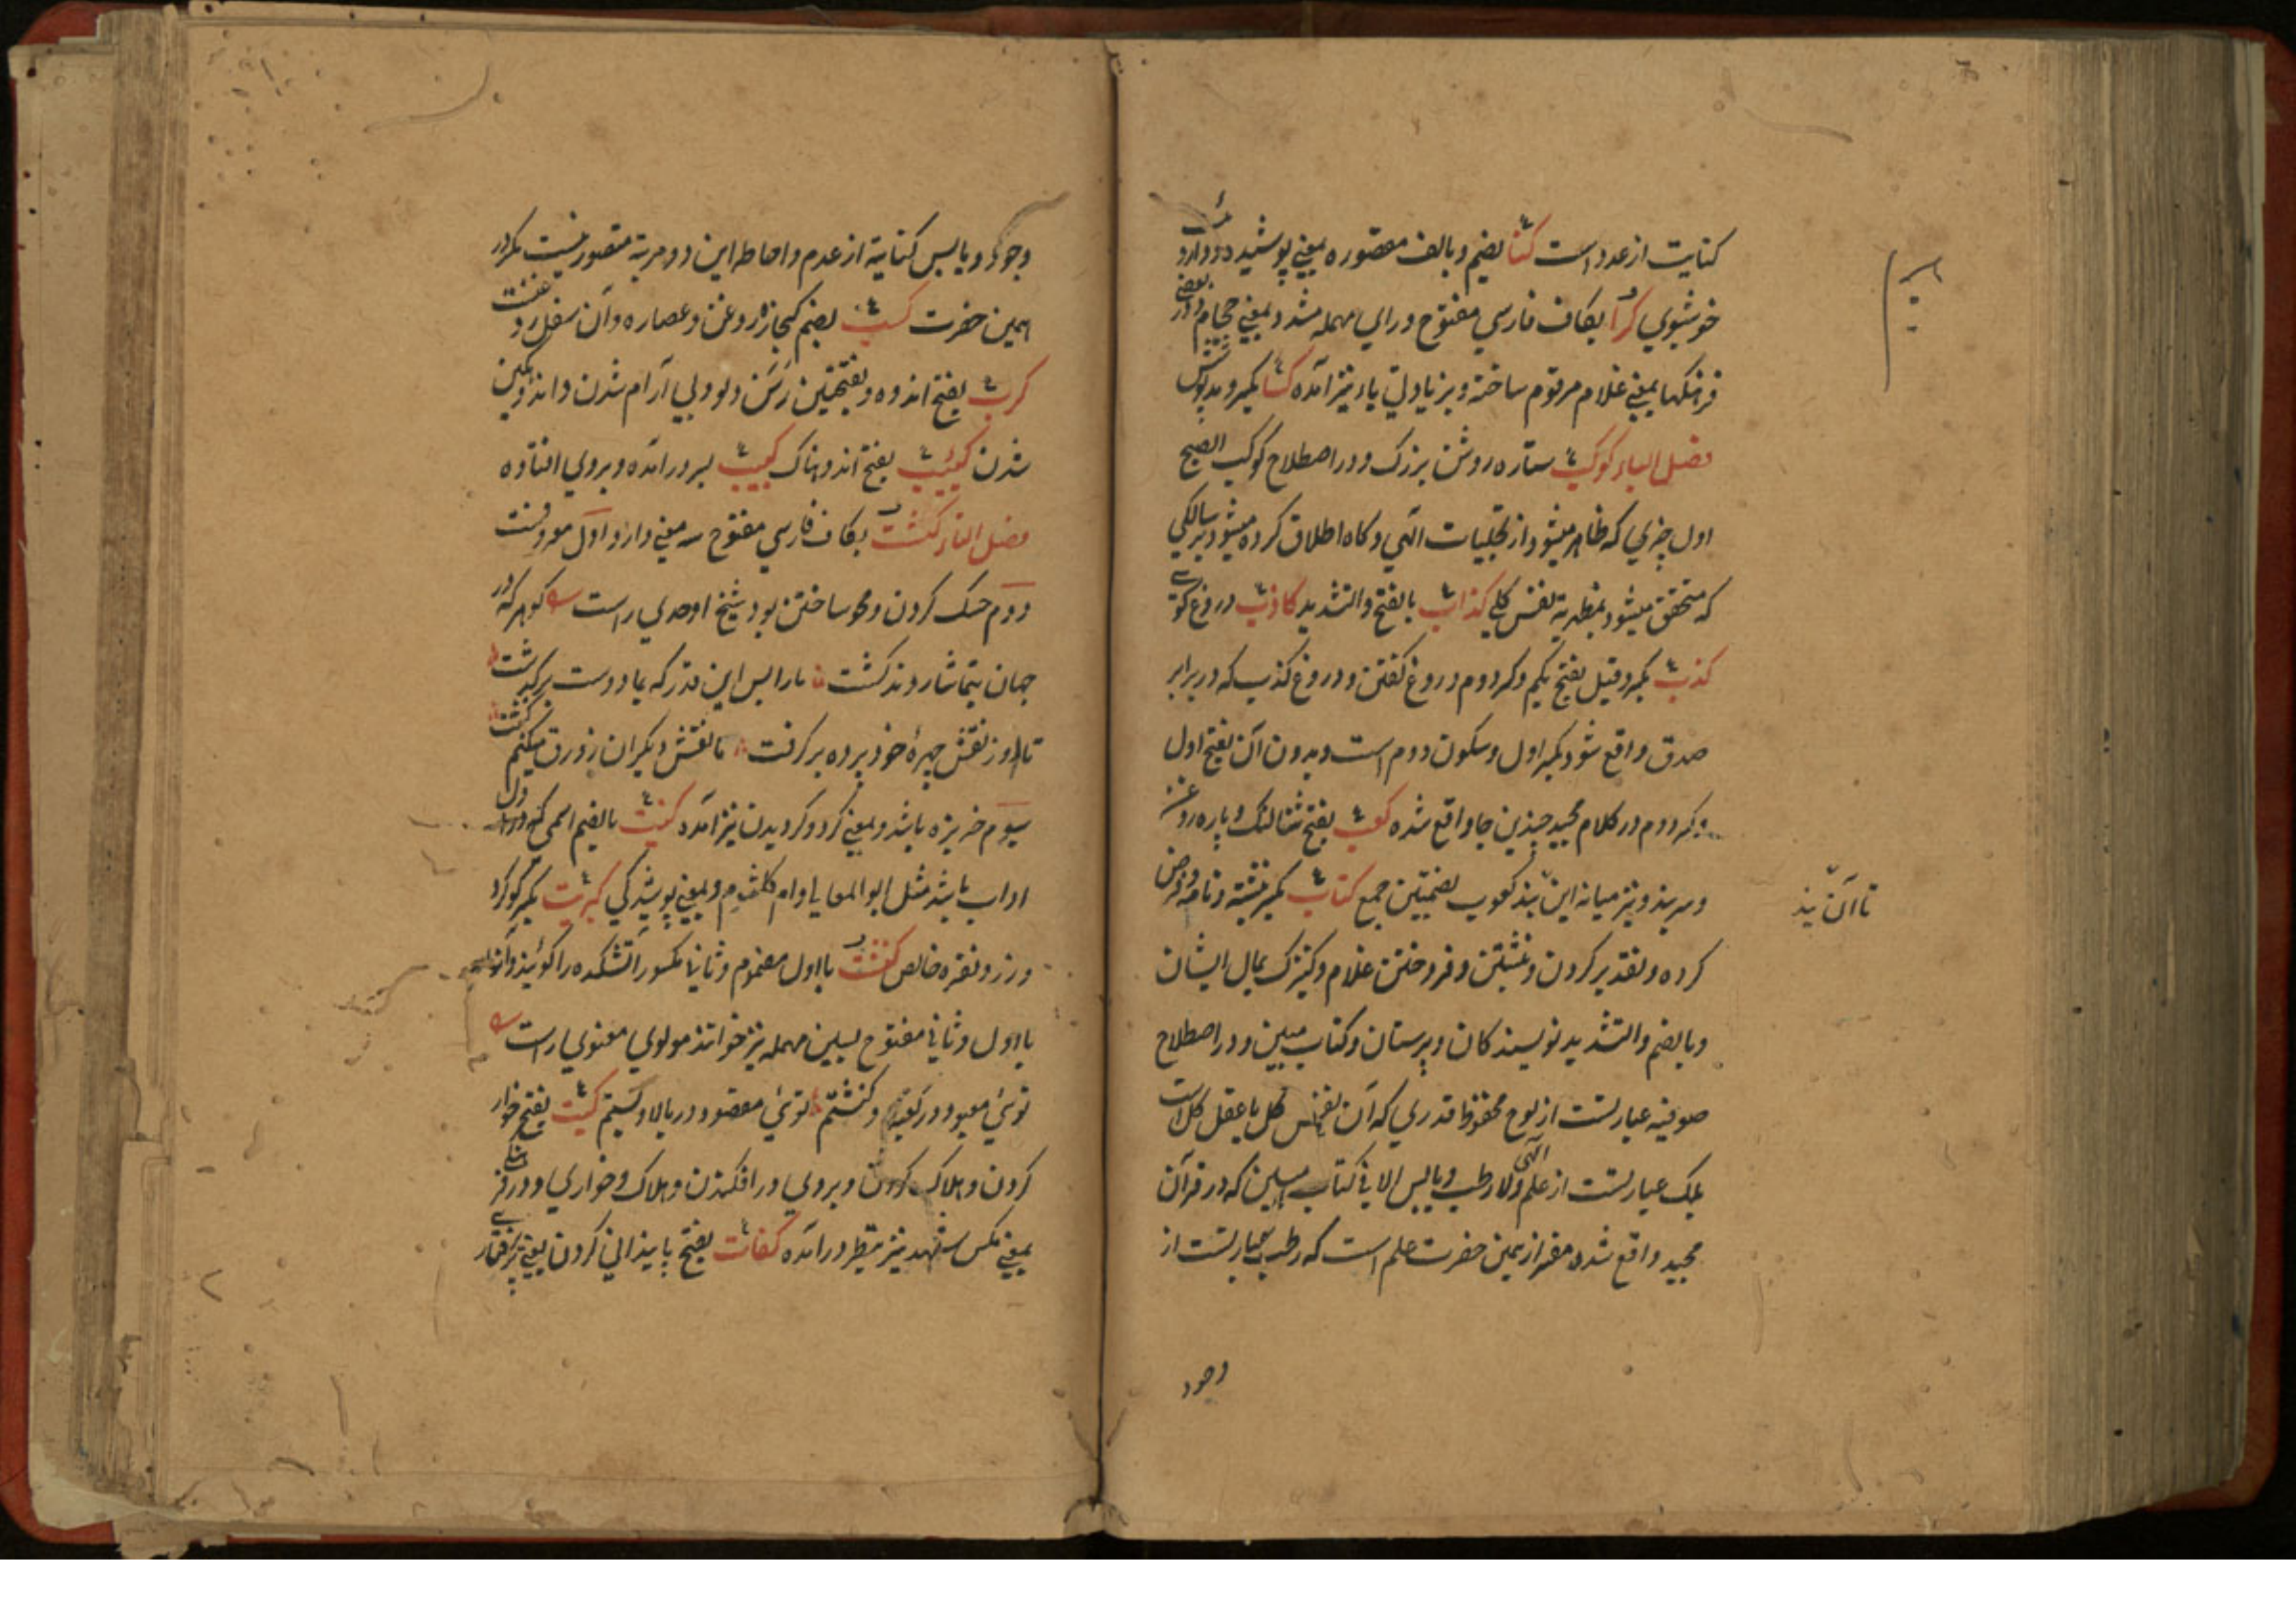 کنایت از عدد است کنا بضم و بالف مقصوره بمعنی پوشیده و دارو
خوشبوی کرا بکاف فارسی مفتوح و رای مهمله مشدد بمعنی حجام و در بعضی
فرهنگها بمعنی غلام مرقوم ساخته و بزیادتی یاء نیز آمده کسا بکسر و مد پوشش
فصل الباء کوکب ستاره روشن بزرک و در اصطلاح کوکب الصبح
اول چیزی که ظاهر میشود از تجلیات الهی و کاه اطلاق کرده میشود بر سالکی
که متحقق میشود بمظهریة نفس کلی کذاب بالفتح والتشدید کاذب دروغ کوی
کذب بکسر و قیل بفتح یکم و کسر دوم دروغ کفتن و دروغ کذب که در برابر
صدق واقع شود بکسر اول و سکون دوم است و بدون آن بفتح اول
و کسر دوم در کلام مجید چندین جا واقع شده کعب بفتح شتالنک و پاره روغن
و سر بند و نیز میانه این بند کعوب بضمتین جمع کتاب بکسر نبشته و نامه و فرض
تا آن بند
کرده و تقدیر کردن و نبشتن و فروختن غلام و کنیزک بمال ایشان
و بالضم والتشدید نویسند کان و دبرستان و کتاب مبین و در اصطلاح
صوفیه عبارتست از لوح محفوظ قدری که آن نفس کل یا عقل کل است
بلک عبارتست از علم الهی ولا رطب و یابس الا فی کتاب مبین که در قرآن
مجید واقع شده مفر از یمین حضرت علم است که رطب عبارتست از
وجود
وجود و یابس کنایة از عدم و احاطه این دو مرتبة متصور نیست مکر در
همین حضرت کسب بضم کنجاره روغن و عصاره و آن سفل روغنست
کرب بفتح اندوه و بفتحتین رسن دلو و بی آرام شدن و اندوهکین
شدن کئیب بفتح اندوهناک کبیب بسر در آمده و بروی افتاده
فصل التاء کشت بکاف فارسی مفتوح سه معنی دارد اول معروفست
دوم حک کردن و محو ساختن بود شیخ اوحدی راست کو هر که در
جهان بتماشا روند کشت ما را بس این قدر که بما دوست بر کذشت
تا او ز نقش چهره خود پرده بر کرفت ما نقش دیکران ز ورق میکنیم کشت
سیوم خربزه باشد و بمعنی کرد و کردیدن نیز آمده کنیت بالضم اسمی که در اول
او اب باشد مثل ابوالمعالی یا و ام کلثوم و بمعنی پوشیدکی کبریت بکسر کوکرد
و زر و نقره خالص کنشت با اول مضموم و ثانی مکسور آتشکده را کویند و آنرا
با اول و ثانی مفتوح بسین مهمله نیز خوانند مولوی معنوی راست
توئی معبود در کعبه و کنشتم توئی مقصود در بالا و پستیم کبت بفتح خوار
کردن و هلاک کردن و بروی در افکندن و هلاک و خواری و در فرهنکی
بمعنی مکس شهد نیز بنظر در آمده کفات بفتح پایندانی کردن یعنی پذرفتار